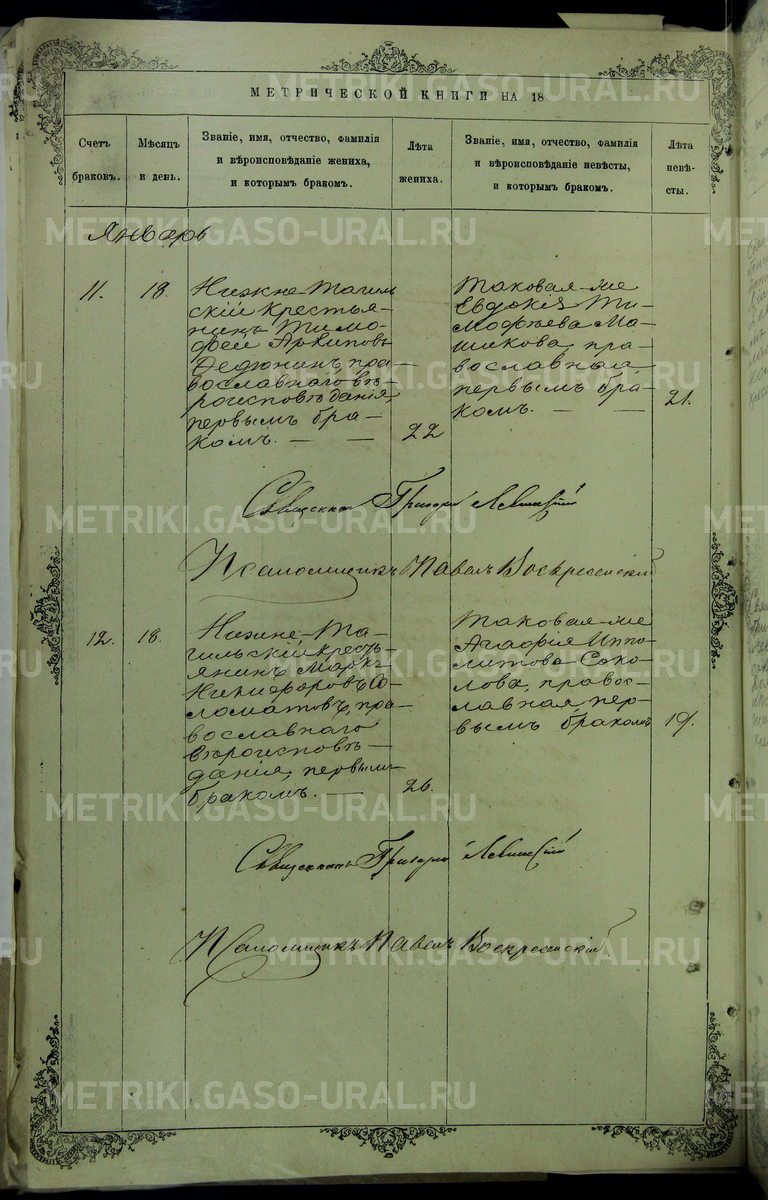 МЕТРИЧЕСКОЙ КНИГИ НА 18
Счетъ
браковъ.
Мѣсяцъ
и день.
Званіе, имя, отчество, фамилія
и вѣроисповѣданіе жениха,
и которымъ бракомъ.
Лѣта
жениха.
Званіе, имя, отчество, фамилія
и вѣроисповѣданіе невѣсты,
и которымъ бракомъ.
Лѣта
невѣ-
сты.
Январь
11.
18.
Нижне-Тагиль
скій крестья-
нинъ Тимо-
фей Архиповъ
Дедюнинъ, пра-
вославнаго вѣ-
роисповѣданія,
первымъ бра-
комъ. — —
22
Таковая-же
Евдокія Ти-
мофѣева Ма-
шикова, пра-
вославная,
первымъ бра-
комъ. — —
21.
Священникъ Григорій Левитскій
Псаломщикъ Павелъ Воскресенскій
12.
18.
Нижне-Та-
гильскій кресть-
янинъ Маркъ
Никифоровъ Со-
ломатовъ, пра-
вославнаго
вѣроисповѣ-
данія, первымъ
бракомъ. —
26.
Таковая-же
Агафія Иппо-
литова Соко-
лова, правос-
лавная, пер-
вымъ бракомъ
19.
Священникъ Григорій Левитскій
Псаломщикъ Павелъ Воскресенскій
METRIKI.GASO-URAL.RU